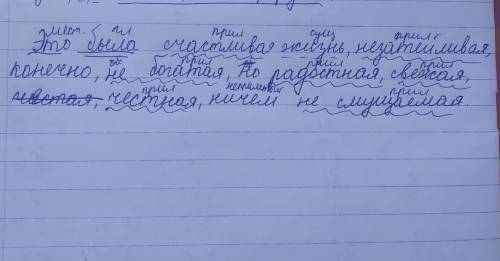 мест. гл прил сущ прил
Это была счастливая жизнь, незатейливая,
прил прил прил
конечно, не богатая, но радостная, свежая,
прил прил
чистая, честная, ничем не смущаемая.